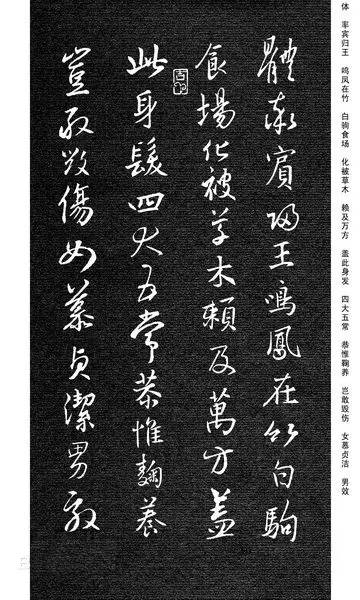 体 率宾归王 鸣凤在竹 白驹食场 化被草木 赖及万方 盖此身发 四大五常 恭惟鞠养 岂敢毁伤 女慕贞洁 男效
體率賓歸王鳴鳳在竹白駒
食場化被草木賴及萬方蓋
此身髮四大五常恭惟鞠養
豈敢毀傷女慕貞潔男效